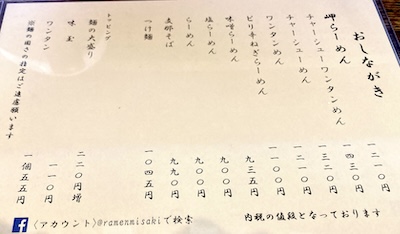 おしながき
岬らーめん 一二一〇円
チャーシューワンタンめん 一四三〇円
チャーシューめん 一三二〇円
ワンタンめん 一一〇〇円
ピリ辛ねぎらーめん 一一〇〇円
味噌らーめん 九三五円
塩らーめん 九〇〇円
らーめん 九〇〇円
支那そば 九九〇円
つけ麺 一〇四五円
トッピング
麺の大盛り 二二〇円増
味玉 一一〇円
ワンタン 一個五五円
※麺の固さの指定はご遠慮願います
内税の値段となっております
f 〈アカウント〉@ramenmisakiで検索